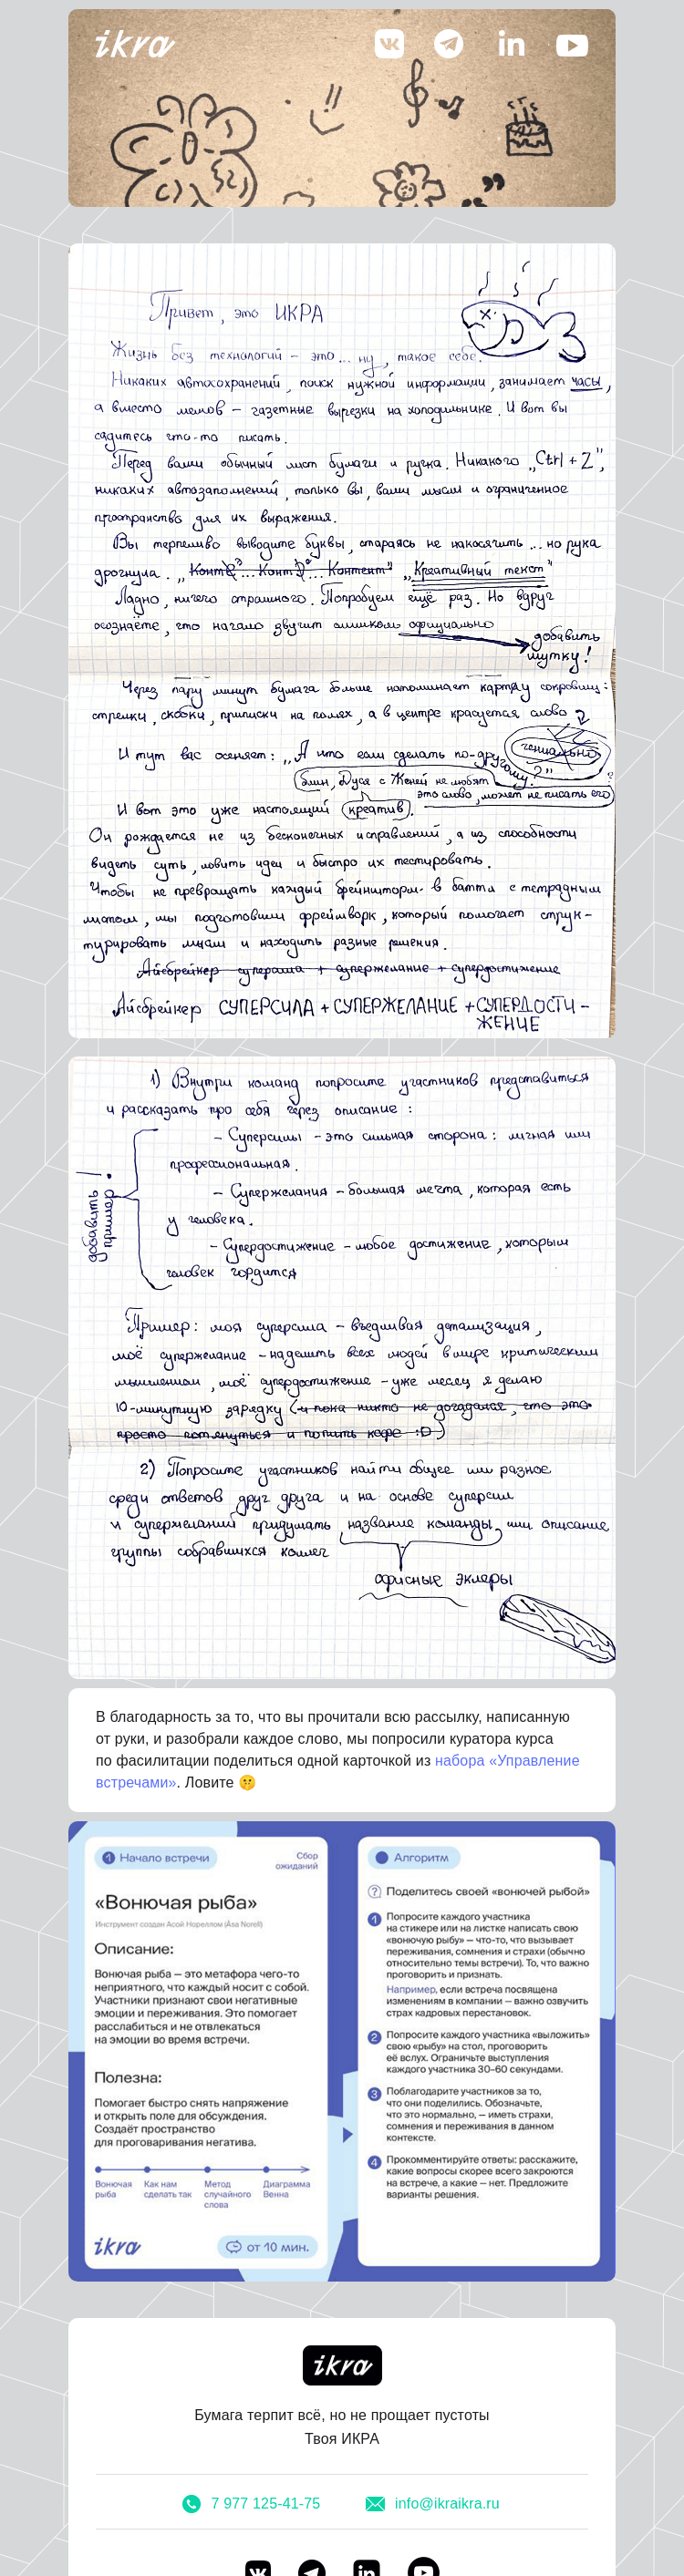 ikra
Привет, это ИКРА
Жизнь без технологий – это... ну, такое себе.
Никаких автосохранений, поиск нужной информации, занимает часы,
а вместо мемов – газетные вырезки на холодильнике. И вот вы
садитесь что-то писать.
Перед вами обычный лист бумаги и ручка. Никакого „Ctrl + Z",
никаких автозаполнений, только вы, ваши мысли и ограниченное
пространство для их выражения.
Вы терпеливо выводите буквы, стараясь не накосячить... но рука
дрогнула. „ Контент" „Креативный текст"
Ладно, ничего страшного. Попробуем ещё раз. Но вдруг
осознаёте, что начало звучит слишком официально
добавить
шутку!
Через пару минут бумага больше напоминает карту сокровищ:
стрелки, скобки, приписки на полях, а в центре красуется слово
гениально
И тут вас осеняет: „А что если сделать по-другому?"
блин, Дуся с Женей не любят
это слово, может не писать его?
И вот это уже настоящий креатив.
Он рождается не из бесконечных исправлений, а из способности
видеть суть, ловить идеи и быстро их тестировать.
Чтобы не превращать каждый брейншторм в баттл с тетрадным
листом, мы подготовили фреймворк, который помогает струк-
турировать мысли и находить разные решения.
Айсбрейкер суперсила + супержелание + супердостижение
Айсбрейкер СУПЕРСИЛА + СУПЕРЖЕЛАНИЕ + СУПЕРДОСТИ-
ЖЕНИЕ
1) Внутри команд попросите участников представиться
и рассказать про себя через описание:
– Суперсилы – это сильная сторона: личная или
профессиональная.
– Супержелания – большая мечта, которая есть
у человека.
– Супердостижение – любое достижение, которым
человек гордится
добавить
пример!
Пример: моя суперсила – въедливая детализация,
моё супержелание – наделить всех людей в мире критическим
мышлением, моё супердостижение – уже месяц я делаю
10-минутную зарядку (и пока никто не догадался, что это
просто потянуться и попить кофе :D)
2) Попросите участников найти общее или разное
среди ответов друг друга и на основе суперсил
и супержеланий придумать название команды или описание
группы собравшихся коллег
офисные эклеры
В благодарность за то, что вы прочитали всю рассылку, написанную
от руки, и разобрали каждое слово, мы попросили куратора курса
по фасилитации поделиться одной карточкой из набора «Управление
встречами». Ловите 🤫
1 Начало встречи
Сбор
ожиданий
«Вонючая рыба»
Инструмент создан Асой Нореллом (Åsa Norell)
Описание:
Вонючая рыба — это метафора чего-то
неприятного, что каждый носит с собой.
Участники признают свои негативные
эмоции и переживания. Это помогает
расслабиться и не отвлекаться
на эмоции во время встречи.
Полезна:
Помогает быстро снять напряжение
и открыть поле для обсуждения.
Создаёт пространство
для проговаривания негатива.
Вонючая
рыба
Как нам
сделать так
Метод
случайного
слова
Диаграмма
Венна
ikra
от 10 мин.
Алгоритм
Поделитесь своей «вонючей рыбой»
1 Попросите каждого участника
на стикере или на листке написать свою
«вонючую рыбу» — что-то, что вызывает
переживания, сомнения и страхи (обычно
относительно темы встречи). То, что важно
проговорить и признать.
Например, если встреча посвящена
изменениям в компании — важно озвучить
страх кадровых перестановок.
2 Попросите каждого участника «выложить»
свою «рыбу» на стол, проговорить
её вслух. Ограничьте выступления
каждого участника 30–60 секундами.
3 Поблагодарите участников за то,
что они поделились. Обозначьте,
что это нормально, — иметь страхи,
сомнения и переживания в данном
контексте.
4 Прокомментируйте ответы: расскажите,
какие вопросы скорее всего закроются
на встрече, а какие — нет. Предложите
варианты решения.
ikra
Бумага терпит всё, но не прощает пустоты
Твоя ИКРА
7 977 125-41-75
info@ikraikra.ru